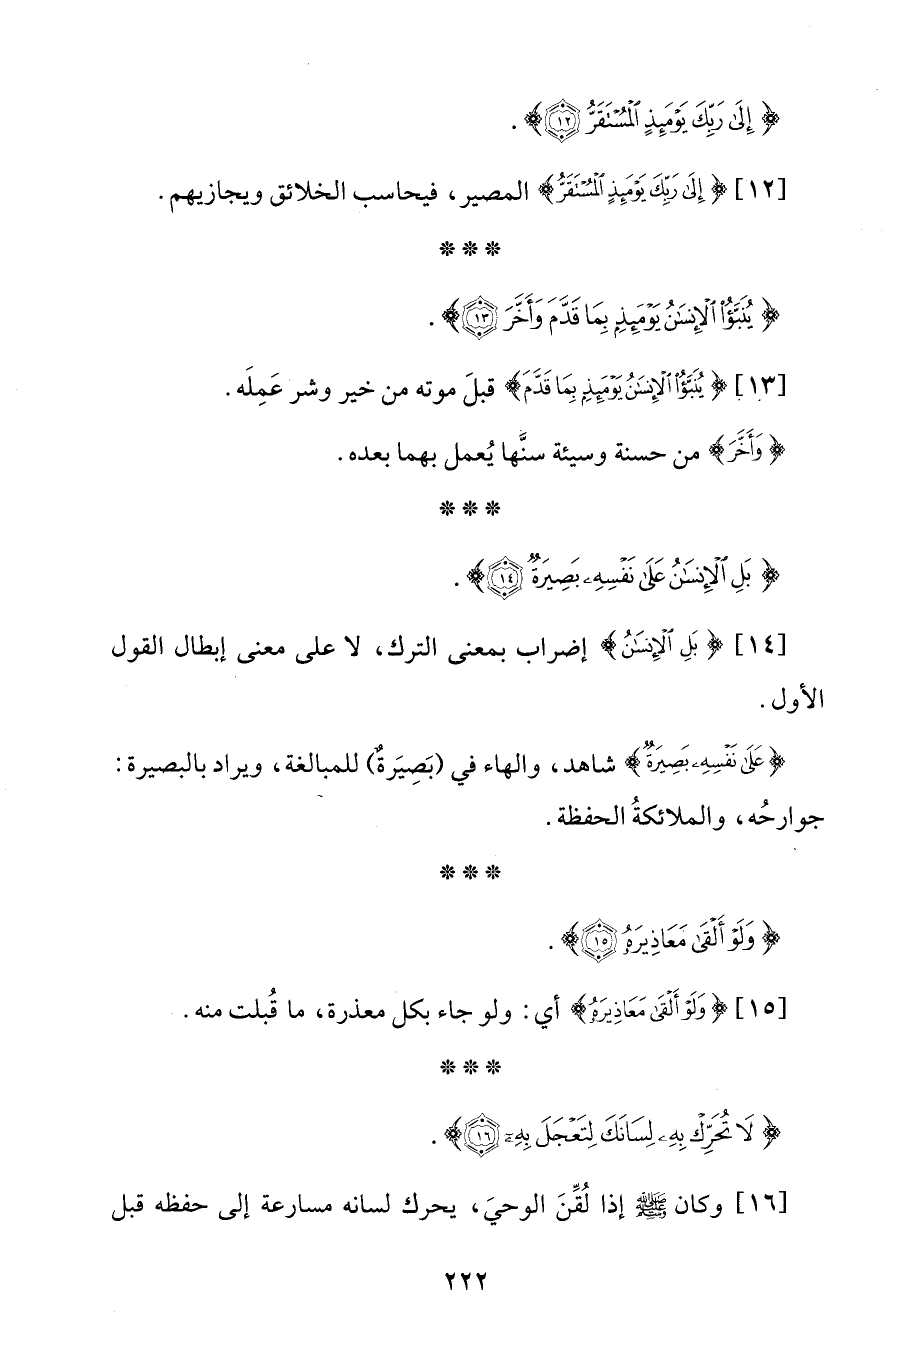 ﴿ إِلَىٰ رَبِّكَ يَوْمَئِذٍ ٱلْمُسْتَقَرُّ ١٢﴾ .
[١٢] ﴿ إِلَىٰ رَبِّكَ يَوْمَئِذٍ ٱلْمُسْتَقَرُّ﴾ المصير، فيحاسب الخلائق ويجازيهم.
* * *
﴿ يُنَبَّؤُا۟ ٱلْإِنسَٰنُ يَوْمَئِذٍۭ بِمَا قَدَّمَ وَأَخَّرَ ١٣﴾ .
[١٣] ﴿ يُنَبَّؤُا۟ ٱلْإِنسَٰنُ يَوْمَئِذٍۭ بِمَا قَدَّمَ﴾ قبلَ موته من خير وشر عَمِلَه.
﴿ وَأَخَّرَ ﴾ من حسنة وسيئة سنَّها يُعمل بهما بعده.
* * *
﴿ بَلِ ٱلْإِنسَٰنُ عَلَىٰ نَفْسِهِۦ بَصِيرَةٌ ١٤﴾ .
[١٤] ﴿ بَلِ ٱلْإِنسَٰنُ ﴾ إضراب بمعنى الترك، لا على معنى إبطال القول
الأول.
﴿ عَلَىٰ نَفْسِهِۦ بَصِيرَةٌ ﴾ شاهد، والهاء في (بَصِيَرةٌ) للمبالغة، ويراد بالبصيرة:
جوارحُه، والملائكةُ الحفظة.
* * *
﴿ وَلَوْ أَلْقَىٰ مَعَاذِيرَهُۥ ١٥﴾ .
[١٥] ﴿ وَلَوْ أَلْقَىٰ مَعَاذِيرَهُۥ﴾ أي: ولو جاء بكل معذرة، ما قُبلت منه.
* * *
﴿ لَا تُحَرِّكْ بِهِۦ لِسَانَكَ لِتَعْجَلَ بِهِۦٓ ١٦﴾ .
[١٦] وكان ﷺ إذا لُقِّنَ الوحيَ، يحرك لسانه مسارعة إلى حفظه قبل
٢٢٢